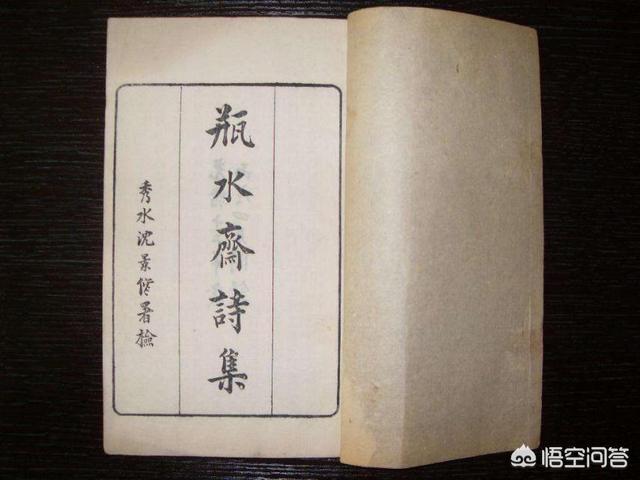 瓶水齋詩集
秀水沈景脩署檢
悟空问答